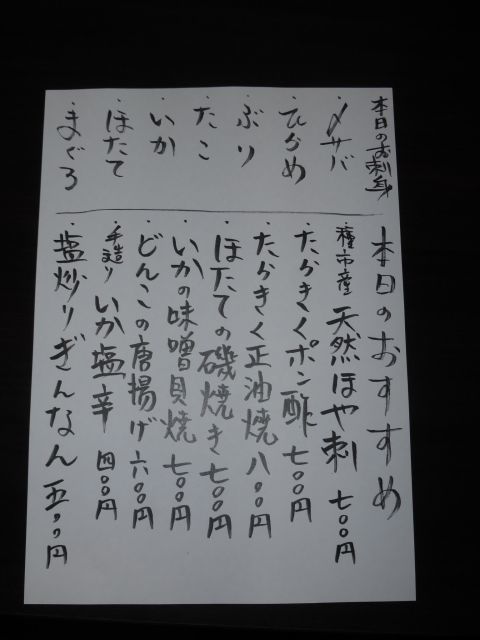 本日のお刺身
・〆サバ
・ひらめ
・ぶり
・たこ
・いか
・ほたて
・まぐろ
本日のおすすめ
・種市産 天然ほや刺 七〇〇円
・たらきくポン酢 七〇〇円
・たらきく正油焼 八〇〇円
・ほたての磯焼き 七〇〇円
・いかの味噌貝焼 七〇〇円
・どんこの唐揚げ 六〇〇円
・手造り いか塩辛 四〇〇円
・塩炒りぎんなん 五〇〇円